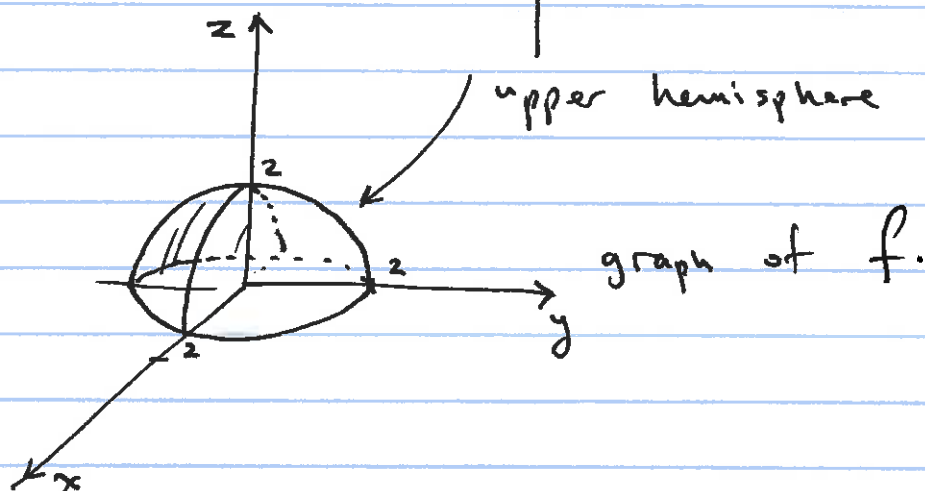 z
upper hemisphere
2
2
graph of f.
y
2
x